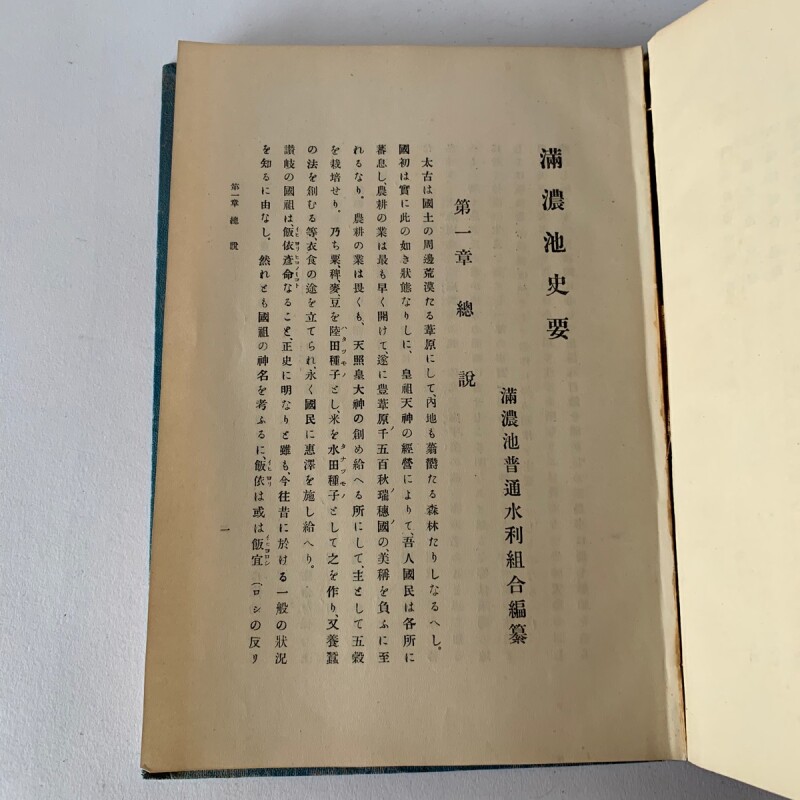 滿濃池史要
滿濃池普通水利組合編纂
第一章 總說
太古は國土の周邊荒漠たる葦原にして、內地も蓊欝たる森林たりしなるへし。
國初は實に此の如き狀態なりしに、皇祖天神の經營によりて、吾人國民は各所に
蕃息し、農耕の業は最も早く開けて、遂に豊葦原ノ千五百秋ノ瑞穗國の、美稱を負ふに至
れるなり。農耕の業は畏くも、天照皇大神の創め給へる所にして、主として五穀
を栽培せり、乃ち粟、稗、麥、豆を陸田種子ハタツモノとし、米を水田種子タナツモノとして之を作り、又養蠶
の法を創むる等、衣食の途を立てられ、永く國民に惠澤を施し給へり。
讃岐の國祖は飯依彥命イヒヨリヒコノミコトなること、正史に明なりと雖も、今往昔に於ける一般の狀況
を知るに由なし、然れとも國祖の神名を考ふるに、飯依イヒヨリは或は飯宜イヒヨロシ（ロシの反リ
第一章 總說
一